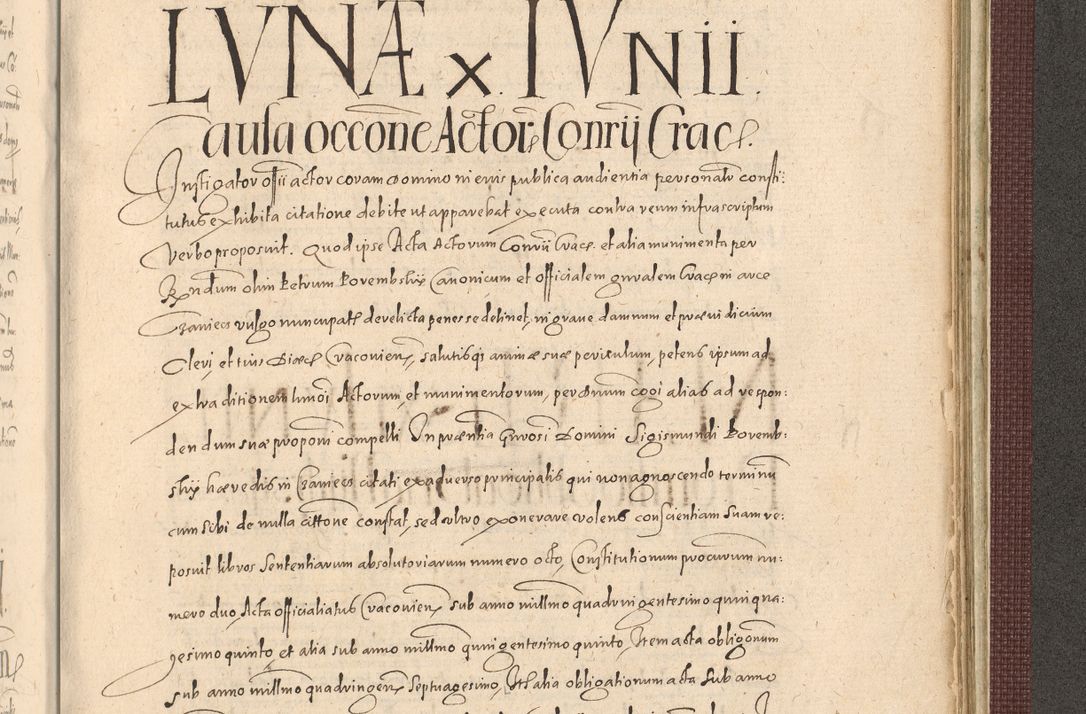 LVNÆ x. IVNII.
causa occõne Actor; Conrij Crac.
Instigator offii actor coram domino in eius publica audientia personalr consti:
tutus exhibita citatione debite ut apparebat executa contra reum infrascriptum
verbo proposuit. Quod ipse Acta Actorum Conrii Crac. et alia munimenta per
Rndum olim Petrum Porembskij Canonicum et officialem gnralem Crac in arce
Czaniecz vulgo nuncupatt derelicta penes se detinet, in grave damnum et præiudicium
Cleri, et tius Diœc Cracovien, salutisqi animæ suæ periculum, petens ipsum ad
extraditionem hmoi Actorum, et munimentorum, per dnum cogi alias ad respon:
dendum suæ proponi compelli In præntia Gnrosi Domini Sigismundi Poremb:
skij hæredis in Czaniecz citati ex adverso principalis qui non agnoscendo terminũ
cum sibi de nulla cittone constat, sed ultro exonerare volens conscientiam suam re:
posuit libros Sententiarum absolutoriarum numero octo, Constitutionum procurum nu:
mero duo, Acta officialiatus Cracovien, sub anno millmo quadringentesimo quinqua:
gesimo quinto, et alia sub anno millmo quingentesimo quinto, Item acta obligonum
sub anno millmo quadringen, Septuagesimo, Itt alia obligationum acta sub anno